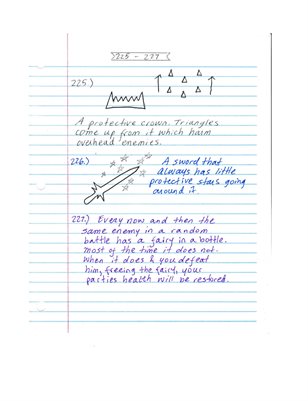 225 - 227
225.)
A protective crown. Triangles
come up from it which harm
overhead enemies.
226.)
A sword that
always has little
protective stars going
around it.
227.) Every now and then the
same enemy in a random
battle has a fairy in a bottle.
most of the time it does not.
When it does & you defeat
him, freeing the fairy, your
parties health will be restored.